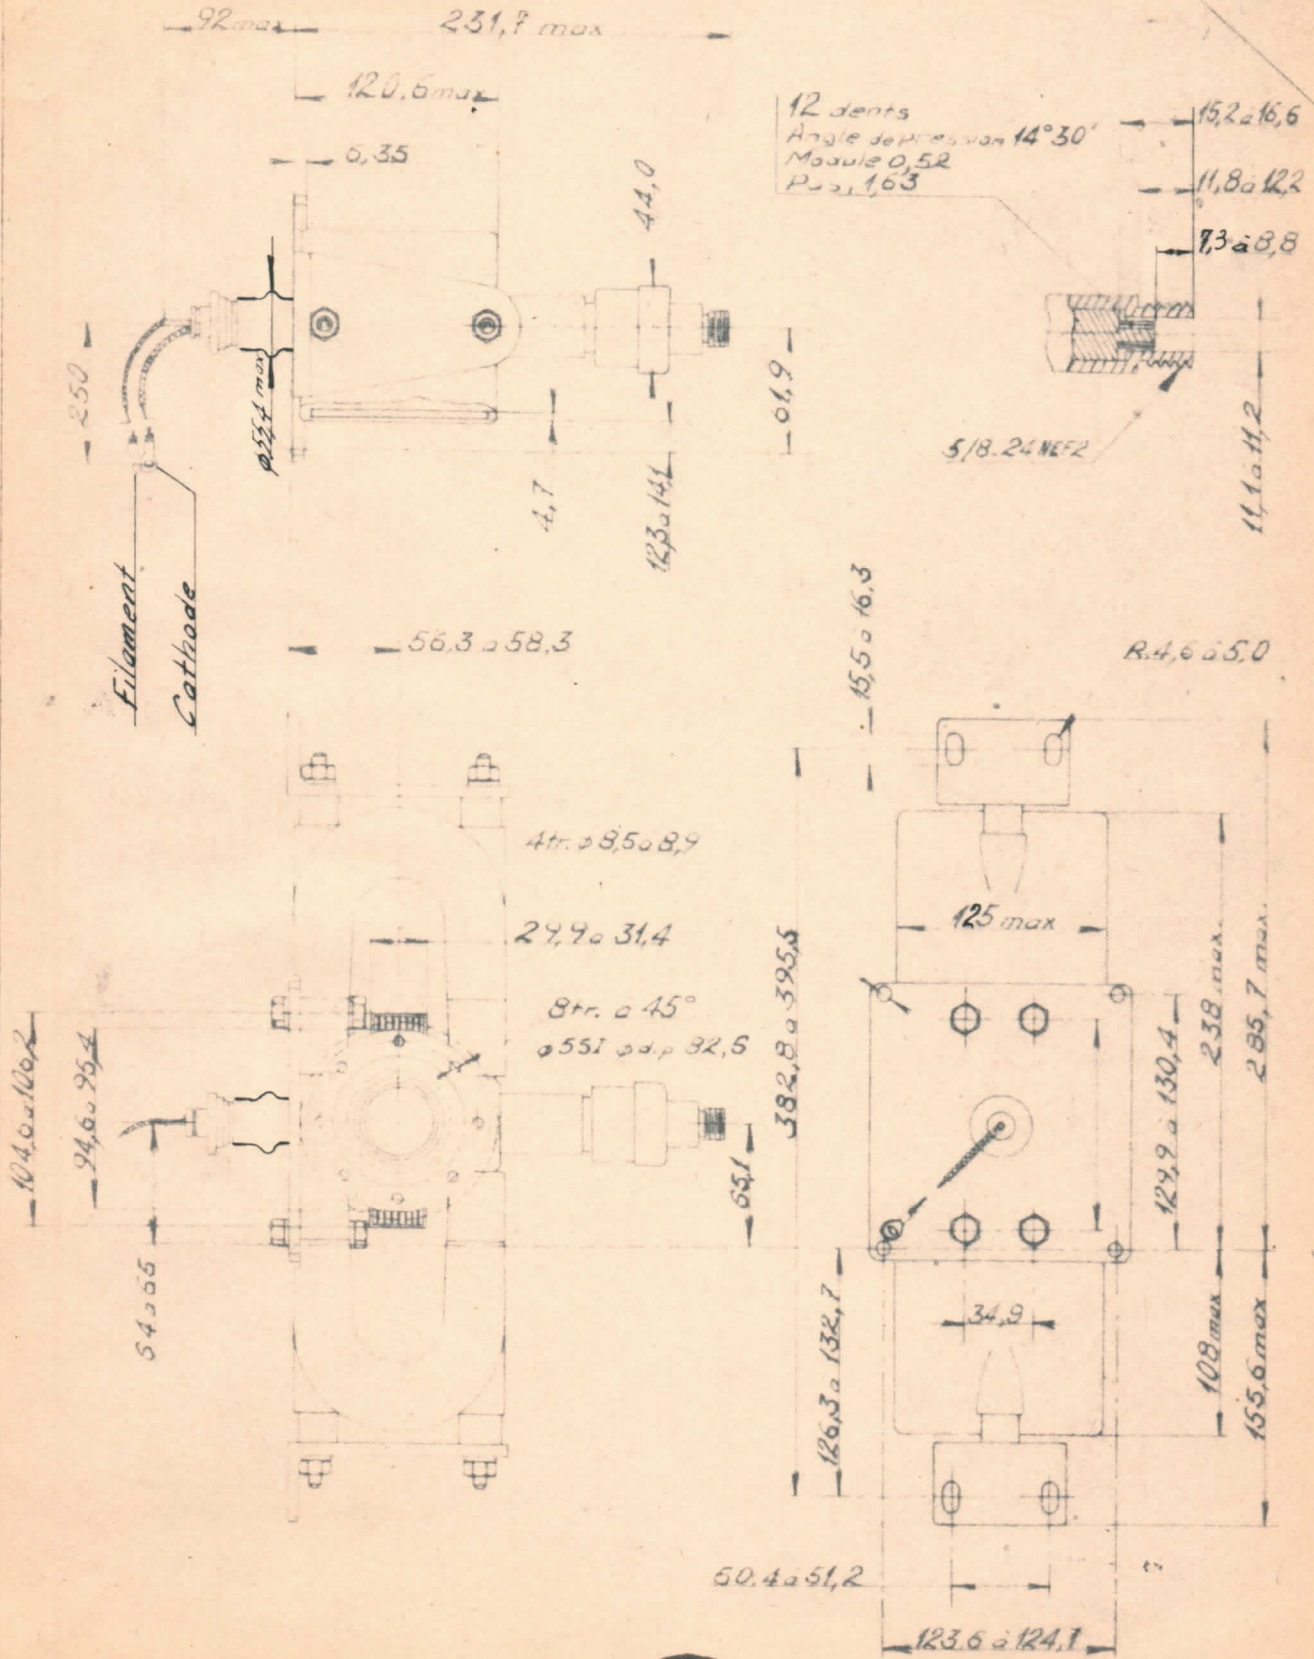 92 max
231,7 max
120,6 max
6,35
44,0
12 dents
Angle de pression 14°30'
Module 0,52
Pas, 1,63
15,2 à 16,6
11,8 à 12,2
7,3 à 8,8
250
61,9
5/8.24 NEF2
11,1 à 11,2
4,7
12,3 à 14,1
Filament
Cathode
56,3 à 58,3
15,5 à 16,3
R.4,6 à 5,0
4tr. ø 8,5 à 8,9
29,9 à 31,4
125 max
8tr. à 45°
382,8 à 395,5
238 max.
285,7 max.
104,6 à 106,2
94,6 à 95,4
129,9 à 130,4
65,1
64 à 66
34,9
126,3 à 132,7
108 max
155,6 max
50.4 à 51,2
123.6 à 124,1